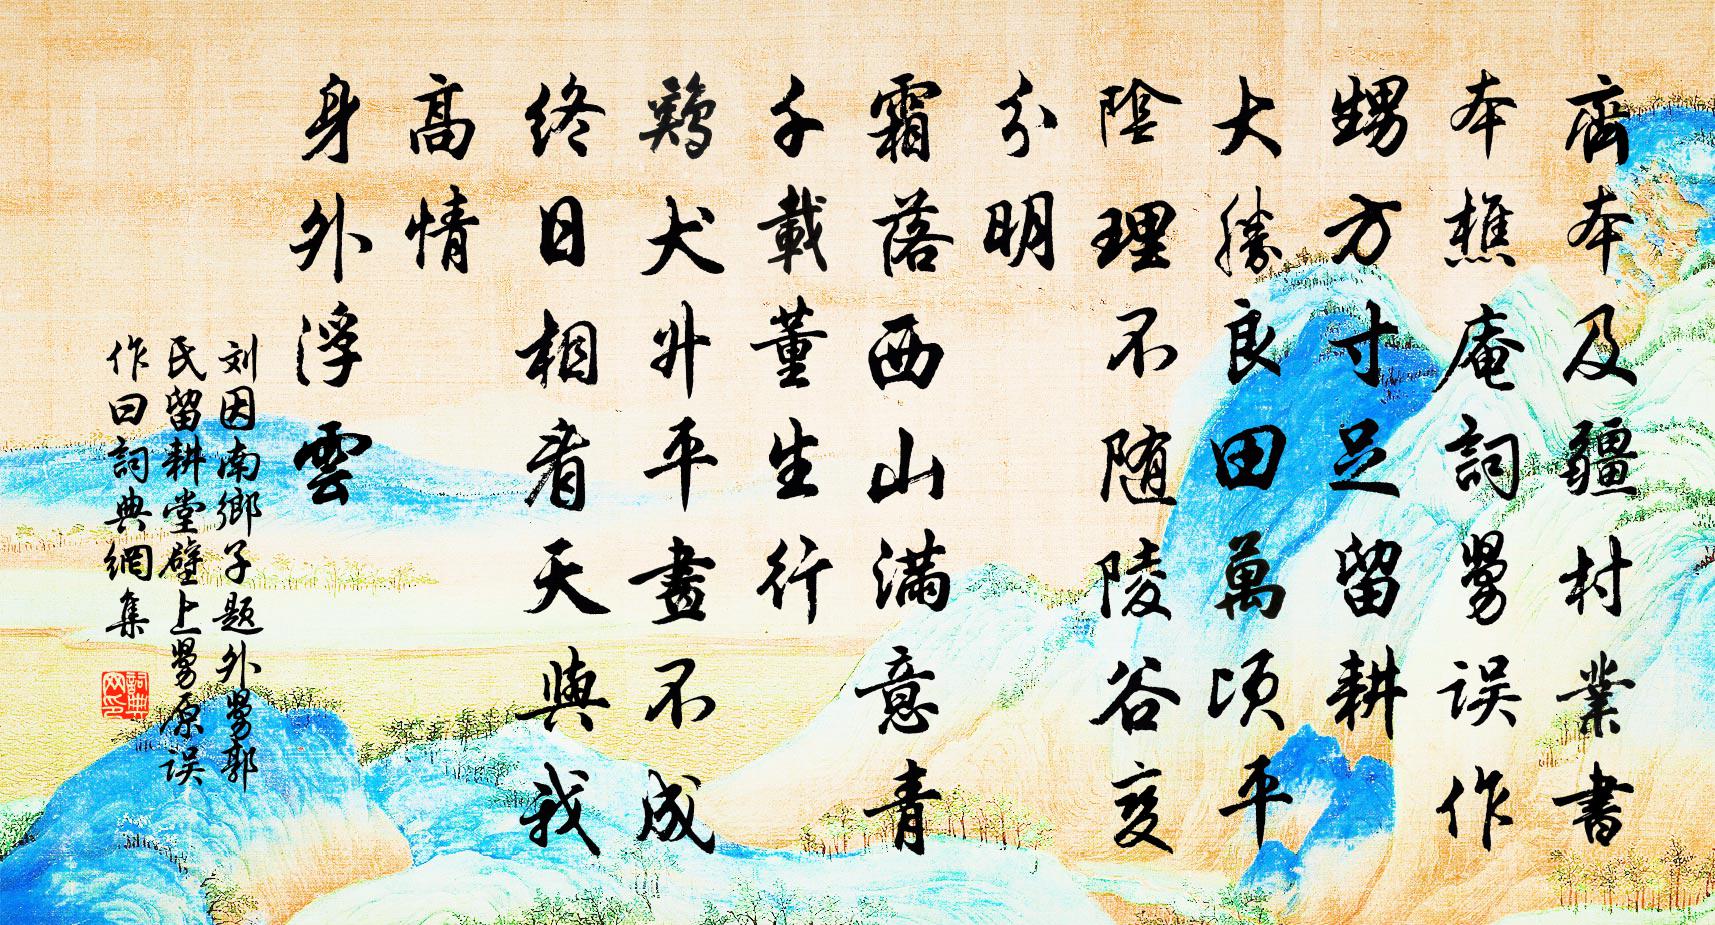 齊本及疆村業書
本樵庵詞舅误作
甥方寸足留耕
大勝良田萬頃平
陰理不随陵谷变
分明
霜落西山满意青
千載董生行
鷄犬升平畫不成
终日相看天與我
高情
身外浮雲
刘因南鄉子题外舅郭
氏留耕堂壁上舅原误
作曰詞典網集
詞典网印